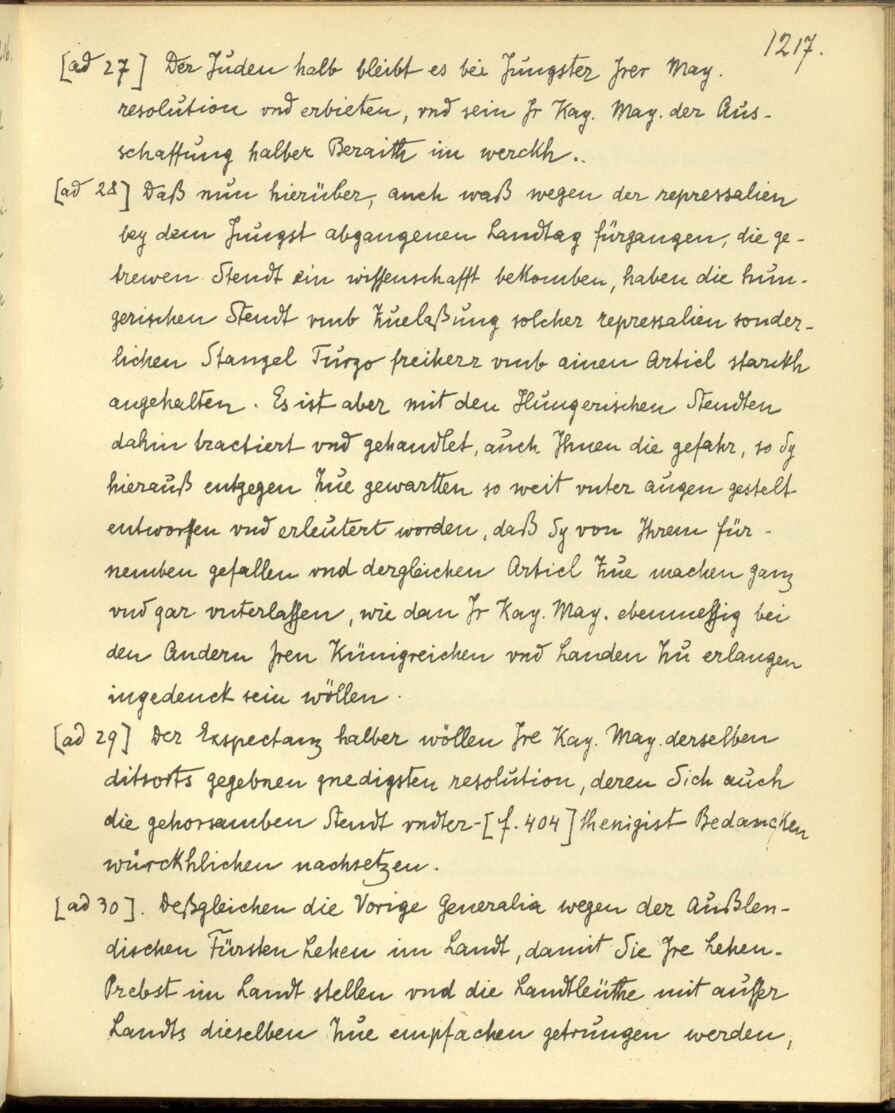 1217.
[ad 27] Der Juden halb bleibt es bei Jungster Jrer May.
resolution vnd erbieten, vnd sein Jr Kay. May. der Aus-
schaffung halber Beraith im werckh..
[ad 28] Daß nun hierüber, auch waß wegen der repressalien
bey dem Jungst abgangenen Landtag fürgangen, die ge-
trewen Stendt ein wissenschafft bekomben, haben die hun-
gerischen Stendt vmb Zuelaßung solcher repressalien sonder-
lichen Stangel Turzo freiherr vmb ainen Articl starckh
angehalten. Es ist aber mit den Hungerischen Stendten
dahin tractiert vnd gehandlet, auch Ihnen die gefahr, so Sy
hierauß entgegen Zue gewartten so weit vnter augen gestelt
entworffen vnd erleutert worden, daß Sy von Ihrem für-
nemben gefallen vnd dergleichen Articl Zue machen ganz
vnd gar vnterlassen, wie dan Jr Kay. May. ebenmessig bei
den Andern Jren Künigreichen vnd Landen Zu erlangen
ingedenck sein wöllen.
[ad 29] Der Exspectanz halber wöllen Jre Kay. May. derselben
ditsorts gegebnen gnedigsten resolution, deren Sich auch
die gehorsamben Stendt vndter-[f. 404] thenigist Bedancken
würckhlichen nachsetzen.
[ad 30]. Deßgleichen die Vorige Generalia wegen der Außlen-
dischen Fürsten Lehen im Landt, damit Sie Jre Lehen-
Probst im Landt stellen vnd die Landtleüthe mit ausser
Landts dieselben Zue empfachen getrungen werden,